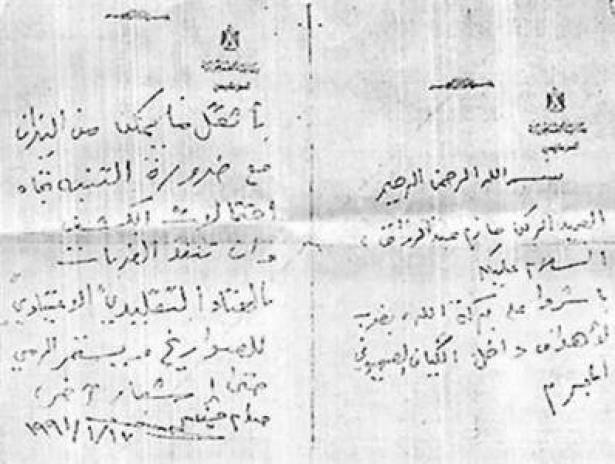 بسم الله الرحمن الرحيم
السيد الركن حازم عبد الرزاق
السلام عليكم
باشروا على بركة الله بضرب
الأهداف داخل الكيان الصهيوني
المجرم
بأثقل ما يمكن من النيران
مع ضرورة التنبه تجاه
احتمالات الكشف
وان تنفذ الضربات
بالعتاد التقليدي الاعتيادي
للصواريخ ويستمر الرمي
حتى إشعار آخر،
صدام حسين
١٩٩١/١/١٧